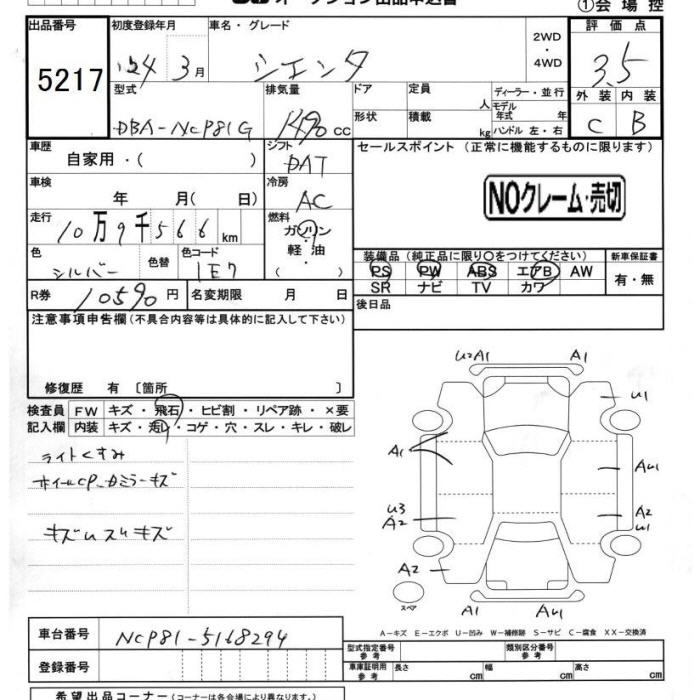 オークション出品申込書
①会場控
出品番号 初度登録年月 車名・グレード 2WD・4WD 評価点
5217 24年3月 シエンタ 3.5
型式 排気量 ドア 定員 人 ディーラー・並行 外装 内装
DBA-NCP81G 1490cc 形状 積載 kg モデル年式 年 ハンドル 左・右 C B
車歴 自家用・( ) シフト DAT セールスポイント (正常に機能するものに限ります)
車検 年 月( 日) 冷房 AC
NOクレーム・売切
走行 10万9千566km 燃料 ガソリン 軽・油 ( )
色 シルバー 色替 色コード 1E7
装備品 (純正品に限り○をつけてください) 新車保証書
PS PW ABS エアB AW 有・無
SR ナビ TV カワ
R券 10590円 名変期限 月 日 後日品
注意事項申告欄(不具合内容等は具体的に記入して下さい)
修復歴 有 〔箇所 〕
検査員 FW キズ・飛石・ヒビ割・リペア跡・×要
記入欄 内装 キズ・汚れ・コゲ・穴・スレ・キレ・破レ
ライトくすみ
ホイールCP、ドアミラーキズ
キズUスレキズ
U2A1 A1
U1
A1
AU1
U3
A2
A2
U1
A2
スペア
A1 AU1
A－キズ E－エクボ U－凹み W－補修跡 S－サビ C－腐食 XX－交換済
車台番号 NCP81-5168294
型式指定番号 参考 類別区分番号 参考
登録番号 車庫証明用 参考 長さ cm 幅 cm 高さ cm
希望出品コーナー (コーナーは各会場により異なります。)